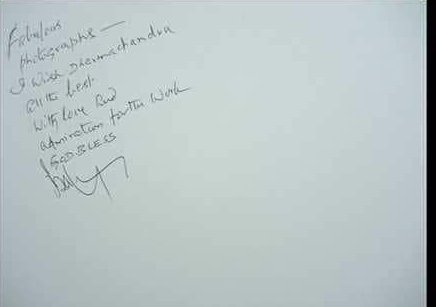 Fabulous
photographs —
I wish Dharmachandra
all the best.
with love and
admiration for the work
GOD BLESS